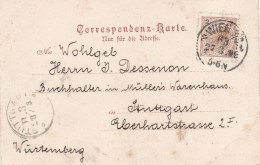 Correspondenz-Karte.
Nur für die Adresse.
WIEN
3-6N
Wohlgeb
Herrn J. Dessenon
Buchhalter in Müller's Warenhaus
Stuttgart
Eberhartstrasse 2 I
Würtemberg